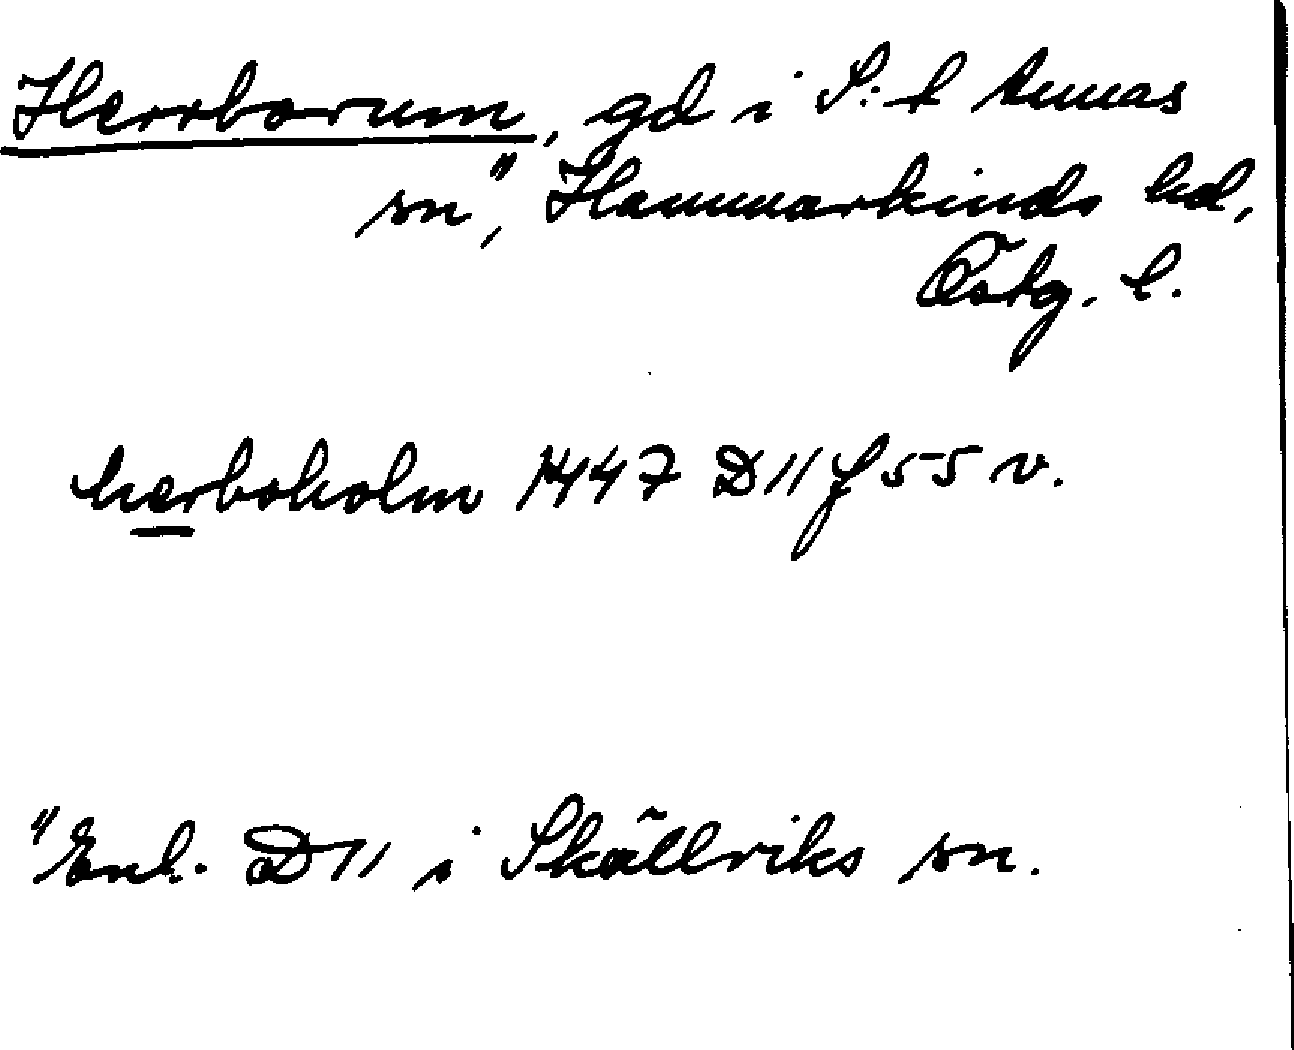 Herrborum, gd i S:t Annas
sn¹⁾, Hammarkinds hd,
Östg. l.
herboholm 1447 D 11 f 55 v.
¹⁾ Enl. D 11 i Skällviks sn.